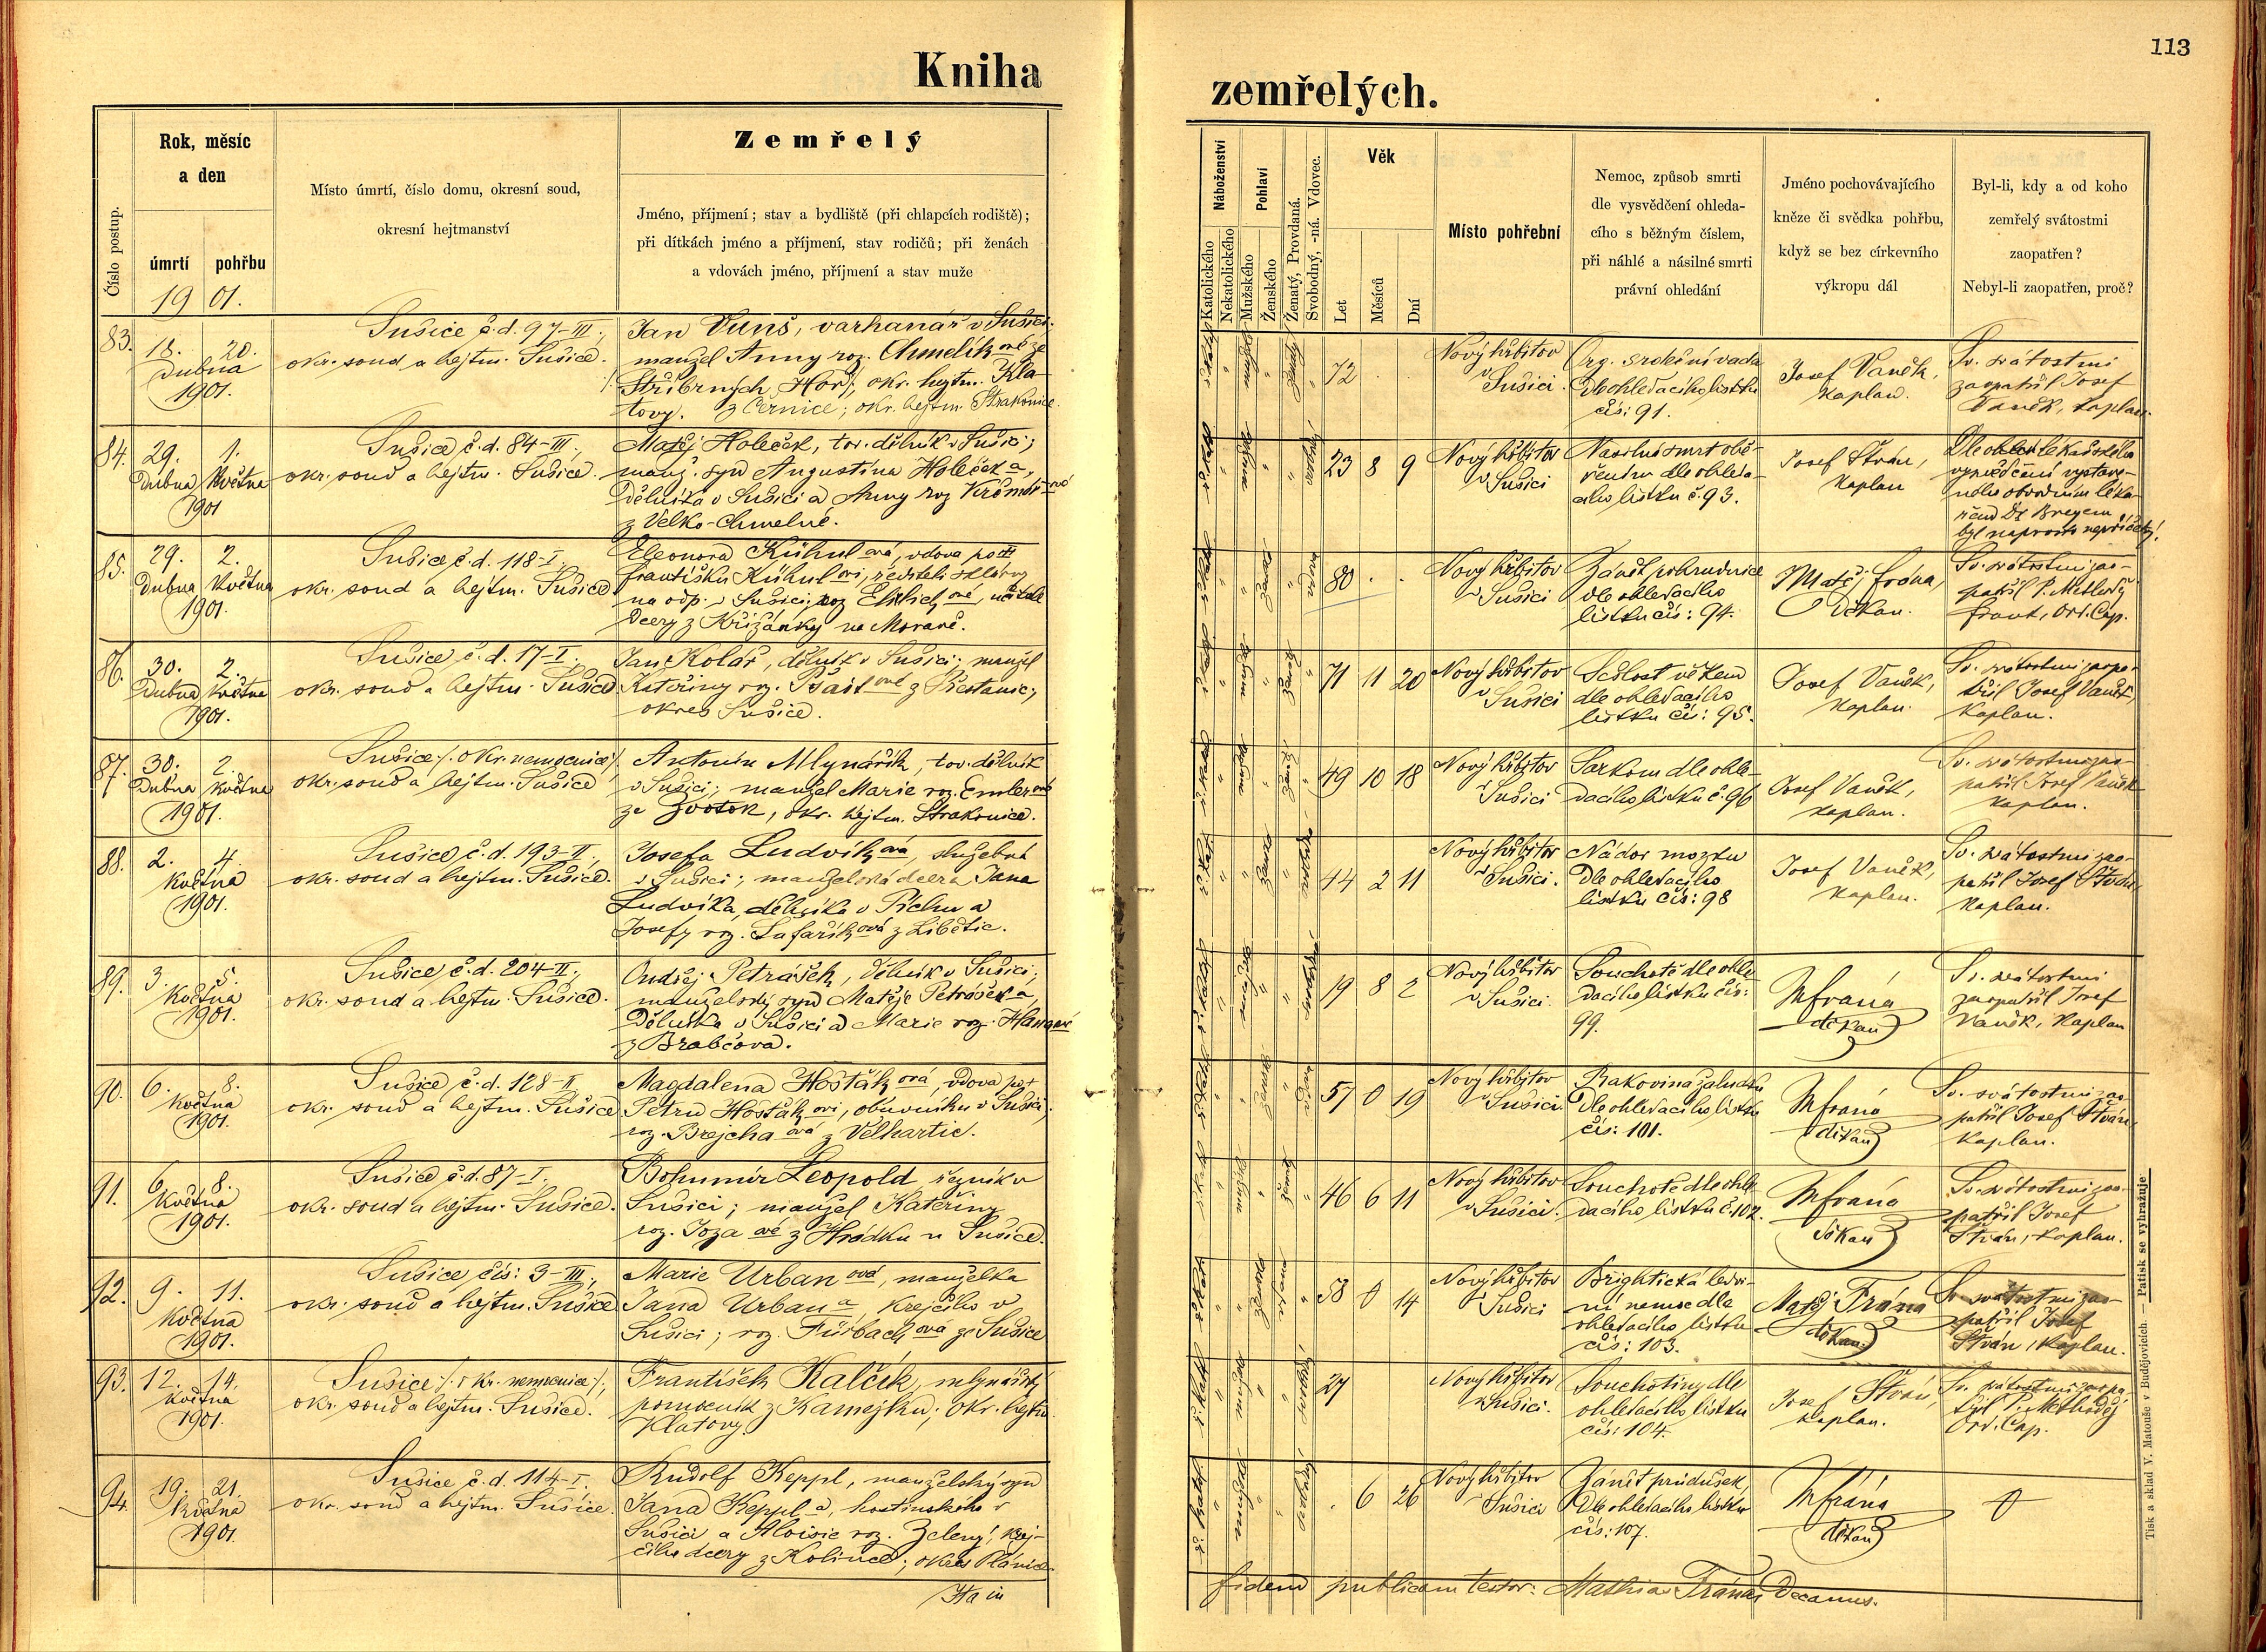 113
Kniha
zemřelých.
Číslo postup.
Rok, měsíc
a den
úmrtí
pohřbu
19 01.
Místo úmrtí, číslo domu, okresní soud,
okresní hejtmanství
Zemřelý
Jméno, příjmení; stav a bydliště (při chlapcích rodiště);
při dítkách jméno a příjmení, stav rodičů; při ženách
a vdovách jméno, příjmení a stav muže
Náboženství
Katolického
Nekatolického
Pohlaví
Mužského
Ženského
Ženatý, Provdaná.
Svobodný, -ná. Vdovec.
Věk
Let
Měsíců
Dní
Místo pohřební
Nemoc, způsob smrti
dle vysvědčení ohleda-
cího s běžným číslem,
při náhlé a násilné smrti
právní ohledání
Jméno pochovávajícího
kněze či svědka pohřbu,
když se bez církevního
výkropu dál
Byl-li, kdy a od koho
zemřelý svátostmi
zaopatřen?
Nebyl-li zaopatřen, proč?
83.
18. 20.
Dubna
1901.
Sušice č.d. 97-III.,
okr. soud a hejtm. Sušice.
Jan Vuňš, varhanář v Sušici;
manžel Anny roz. Chmelíkové ze
Stříbrných Hor, okr. hejtm. Kla-
tovy. z Černice; okr. hejtm. Strakonice.
72 . .
Nový hřbitov
v Sušici.
Org. srdeční vada
dle ohledacího lístku
čís: 91.
Josef Vaněk,
kaplan.
Sv. svátostmi
zaopatřil Josef
Vaněk, kaplan.
84.
29. 1.
Dubna Května
1901
Sušice č.d. 84-III.,
okr. soud a hejtm. Sušice.
Matěj Holeček, tov. dělník v Sušici;
manž. syn Augustina Holečka,
dělníka v Sušici a Anny roz
z Velko-Chmelné.
23 8 9
Nový hřbitov
v Sušici
Násilná smrt obě-
šením dle ohleda-
cího lístku č. 93.
Josef Štván,
kaplan
Dle lékařského
vysvědčení vystave-
ného obvodním léka-
řem Dr Bregem
byl naprosto nepříčetný!
85.
29. 2.
Dubna Května
1901.
Sušice č.d. 118-I.
okr. soud a hejtm. Sušice
Eleonora Kühnlová, vdova po
Františku Kühnlovi, řediteli sklárny
na odp. v Sušici; roz Ehrlichové, učitele
dcery z Křižánky na Moravě.
80 . .
Nový hřbitov
v Sušici
Zánět pohrudnice
dle ohledacího
lístku čís: 94.
Matěj Frána,
Děkan.
Sv. svátostmi zao-
patřil P. Methoděj
Frant., Ord. Cap.
86.
30. 2.
Dubna Května
1901.
Sušice č.d. 17-I.,
okr. soud a hejtm. Sušice
Jan Kolář, dělník v Sušici; manžel
Kateřiny roz. z Přestanic,
okres Sušice.
71 11 20
Nový hřbitov
v Sušici
Sešlost věkem
dle ohledacího
lístku čís: 95.
Josef Vaněk,
kaplan.
Sv. svátostmi zaopa-
třil Josef Vaněk,
Kaplan.
87.
30. 2.
Dubna Května
1901.
Sušice /: okr. nemocnice :/
okr. soud a hejtm. Sušice
Antonín Mlynářík, tov. dělník
v Sušici; manžel Marie roz. Emlerové
ze Zvotok, okr. hejtm. Strakonice.
49 10 18
Nový hřbitov
v Sušici
Sarkom dle ohle-
dacího lístku č. 96
Josef Vaněk,
kaplan.
Sv. svátostmi zao-
patřil Josef Vaněk
kaplan.
88.
2. 4.
Května
1901.
Sušice č.d. 193-II.,
okr. soud a hejtm. Sušice.
Josefa Ludvíková, služebná
v Sušici; manželská dcera Jana
Ludvíka, dělníka v Píchu a
Josefy roz. Šafaříkové z Libětic.
44 2 11
Nový hřbitov
v Sušici.
Nádor mozku
dle ohledacího
lístku čís: 98
Josef Vaněk,
kaplan.
Sv. svátostmi zao-
patřil Josef Štván
kaplan.
89.
3. 5.
Května
1901.
Sušice č.d. 204-II.,
okr. soud a hejtm. Sušice.
Ondřej Petrášek, dělník v Sušici;
manželský syn Matěje Petráška,
dělníka v Sušici a Marie roz.
z Brabčova.
19 8 2
Nový hřbitov
v Sušici.
Souchotě dle ohle-
dacího lístku čís:
99.
MFrána
děkan
Sv. svátostmi
zaopatřil Josef
Vaněk, Kaplan
90.
6. 8.
Května
1901.
Sušice č.d. 128-II
okr. soud a hejtm. Sušice
Magdalena Hošťáková, vdova po †
Petru Hošťákovi, obuvníku v Sušici,
roz. Brejchaová z Velhartic.
57 0 19
Nový hřbitov
v Sušici.
Rakovina žaludku
dle ohledacího lístku
čís: 101.
MFrána
děkan
Sv. svátostmi zao-
patřil Josef Štván,
kaplan.
91.
6. 8.
Května
1901.
Sušice č.d. 87-I.
okr. soud a hejtm. Sušice.
Bohumír Leopold, řezník v
Sušici; manžel Kateřiny
roz. Jozaové z Hrádku u Sušice.
46 6 11
Nový hřbitov
v Sušici.
Souchotě dle ohle-
dacího lístku č. 102.
MFrána
děkan
Sv. svátostmi zao-
patřil Josef
Štván, kaplan.
92.
9. 11.
Května
1901.
Sušice čís: 3-III.,
okr. soud a hejtm. Sušice
Marie Urbanová, manželka
Jana Urbana, krejčího v
Sušici; roz. Fürbachová ze Sušice
58 0 14
Nový hřbitov
v Sušici
Brightická ledvi-
ní nemoc dle
ohledacího lístku
čís: 103.
Matěj Frána
děkan
Sv. svátostmi zao-
patřil Josef
Štván, kaplan.
93.
12. 14.
Května
1901.
Sušice /: okr. nemocnice :/,
okr. soud a hejtm. Sušice.
František Kalčík, mlynářský
pomocník z Kamejku; okr. hejtm.
Klatovy.
27
Nový hřbitov
v Sušici.
Souchotiny dle
ohledacího lístku
čís: 104.
Josef Štván,
kaplan.
Sv. svátostmi zaopa-
třil P. Methoděj
Ord. Cap.
94.
19. 21.
Května
1901.
Sušice č.d. 114-I.
okr. soud a hejtm. Sušice.
Rudolf Keppl, manželský syn
Jana Keppla, hostinského v
Sušici a Aloisie roz. Zelený, krej-
čího dcery z Kolince; okres Plánice.
. 6 26
Nový hřbitov
v Sušici
Zánět průdušek,
dle ohledacího lístku
čís: 107.
MFrána
děkan
0
fidem publicam testor: Mathias Fránas Decanus.
Tisk a sklad V. Matouše v Budějovicích. — Patisk se vyhražuje